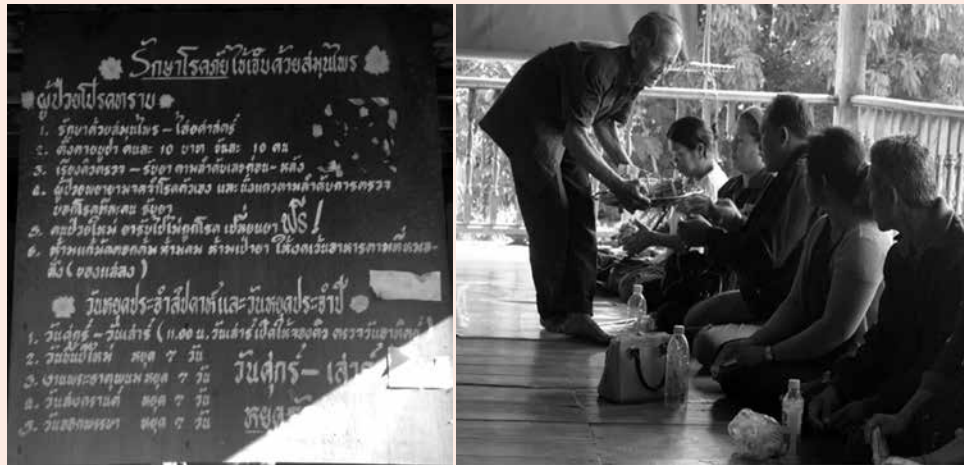 รักษาโรคภัยไข้เจ็บด้วยสมุนไพร
ผู้ป่วยโปรดทราบ
1. รักษาด้วยสมุนไพร – ไสยศาสตร์
2. ตั้งคายบูชา คนละ 10 บาท วันละ 10 คน
3. เรียงคิวตรวจ – รับยา ตามลำดับเลขก่อน – หลัง
4. ผู้ป่วยพยายามจดจำโรคตัวเอง และนั่งแถวตามลำดับการตรวจ
บอกโรคทีละคน รับยา
5. คนป่วยใหม่ เอารับไปไม่ถูกโรค เปลี่ยนยา ฟรี!
6. ห้าม ให้งดเว้นอาหารตามที่หมอ
สั่ง (ของแสลง)
วันหยุดประจำสัปดาห์และวันหยุดประจำปี
1. วันศุกร์ – วันเสาร์ (11.00 น. วันเสาร์เปิดให้จองคิว ตรวจวันอาทิตย์)
2. วันขึ้นปีใหม่ หยุด 7 วัน
3. งานพระธาตุพนม หยุด 7 วัน
4. วันสงกรานต์ หยุด 7 วัน
5. วันออกพรรษา หยุด 7 วัน
วันศุกร์ – เสาร์